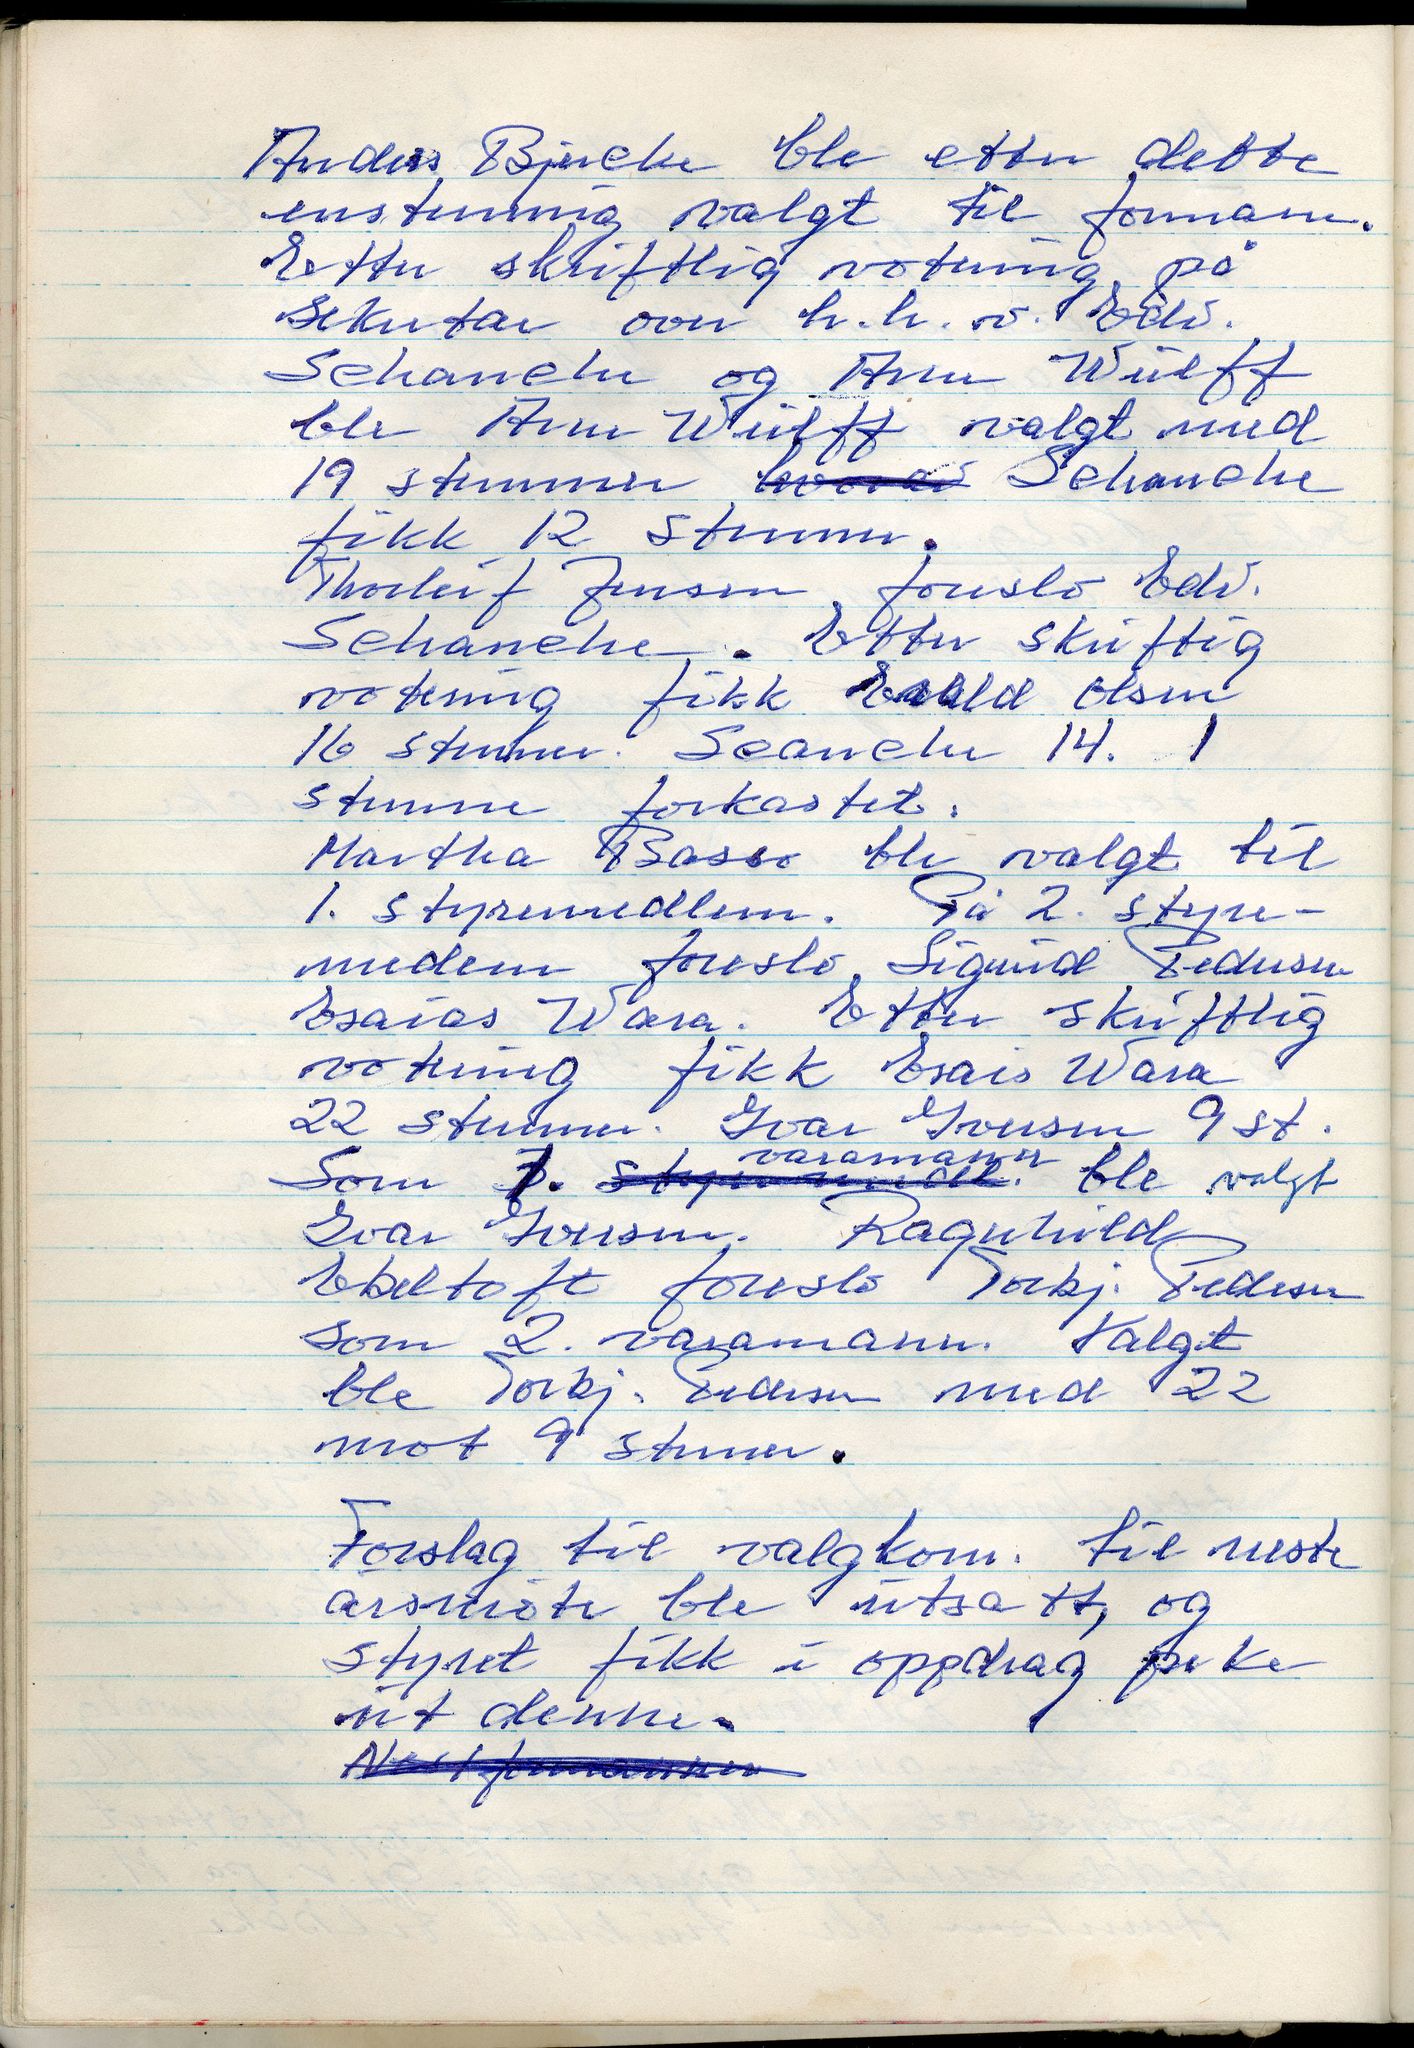 Anders Bjerche ble etter dette
enstemmig valgt til formann.
Etter skriftlig votering på
sekretær over h.h.v. Edv.
Schanche og Arne Wülff
ble Arne Wülff valgt med
19 stemmer Schanche
fikk 12 stemmer.
Thorleif Jensen foreslo Edv.
Schanche. Etter skriftig
votering fikk Olsen
16 stemmer. Scanche 14. 1
stemme forkastet.
Martha Basso ble valgt til
1. styremedlem. På 2. styre-
medem foreslo Sigurd Pedersen
Esaias Wara. Etter skriftlig
votering fikk Esais Wara
22 stemmer. Ivar Iversen 9 st.
Som 1. varamann ble valgt
Ivar Iversen. Ragnhild
Ebeltoft foreslo Torbj. Pedersen
som 2. varamann. Valgt
ble Torbj. Pedersen med 22
mot 9 stemmer.
Forslag til valgkom. til neste
årsmöte ble utsatt, og
styret fikk i oppdrag peke
ut denne.
Nestformannen